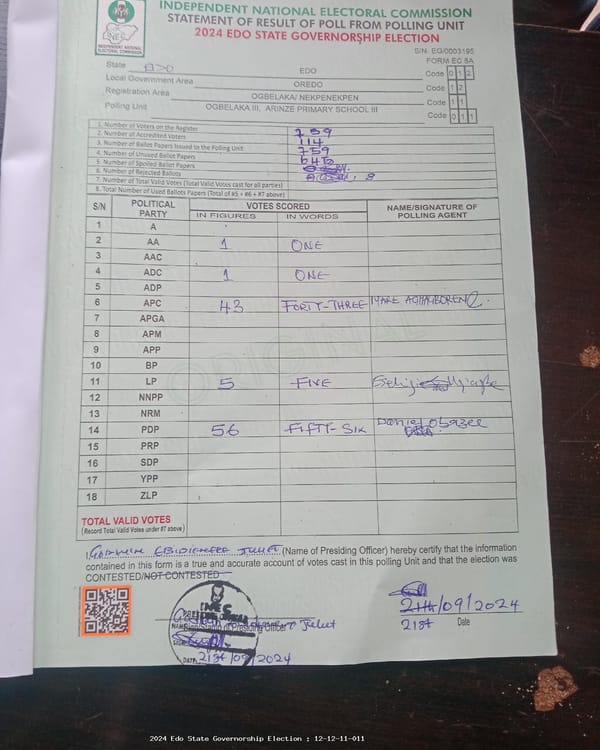 INDEPENDENT NATIONAL ELECTORAL COMMISSION
STATEMENT OF RESULT OF POLL FROM POLLING UNIT
2024 EDO STATE GOVERNORSHIP ELECTION
INEC
INDEPENDENT NATIONAL ELECTORAL COMMISSION
S/N: EG/0003195
FORM EC 8A
State EDO EDO Code 0 1 2
Local Government Area OREDO Code 1 2
Registration Area OGBELAKA/ NEKPENEKPEN Code 1 1
Polling Unit OGBELAKA III, ARINZE PRIMARY SCHOOL III Code 0 1 1
1. Number of Voters on the Register 759
2. Number of Accredited Voters 114
3. Number of Ballot Papers Issued to the Polling Unit 759
4. Number of Unused Ballot Papers 645
5. Number of Spoiled Ballot Papers
6. Number of Rejected Ballots 8
7. Number of Total Valid Votes (Total Valid Votes cast for all parties)
8. Total Number of Used Ballots Papers (Total of #5 + #6 + #7 above)
S/N POLITICAL PARTY VOTES SCORED NAME/SIGNATURE OF POLLING AGENT
IN FIGURES IN WORDS
1 A
2 AA 1 ONE
3 AAC
4 ADC 1 ONE
5 ADP
6 APC 43 FORTY-THREE
7 APGA
8 APM
9 APP
10 BP
11 LP 5 FIVE
12 NNPP
13 NRM
14 PDP 56 FIFTY-SIX Daniel Obazee
15 PRP
16 SDP
17 YPP
18 ZLP
ORIGINAL
TOTAL VALID VOTES
(Record Total Valid Votes under #7 above)
I, JULIET (Name of Presiding Officer) hereby certify that the information
contained in this form is a true and accurate account of votes cast in this polling Unit and that the election was
CONTESTED/NOT CONTESTED
INEC
Juliet
21st/09/2024
21st/09/2024
21st Date
2024 Edo State Governorship Election : 12-12-11-011